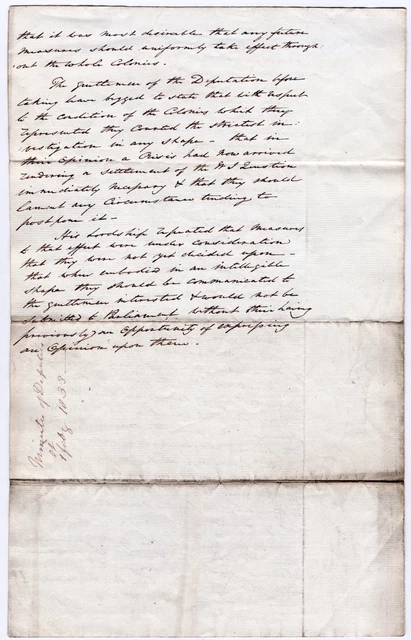 that it was most desirable that any future
measures should uniformly take effect through
out the whole Colonies.
The Gentlemen of the Deputation before
taking leave begged to state that with respect
to the Condition of the Colonies which they
represented they Courted the strictest in:
vestigation in any shape - that in
their Opinion a Crisis had now arrived
rendering a settlement of the W I Question
immediately necessary & that they should
lament any Circumstance tending to
postpone it -
His Lordship repeated that Measures
to that effect were under consideration
that they were not yet decided upon -
that when embodied in an intelligible
shape they should be communicated to
the gentlemen interested & would not be
submitted to Parliament without their having
previously an Opportunity of expressing
an Opinion upon them.
Minute of
1833